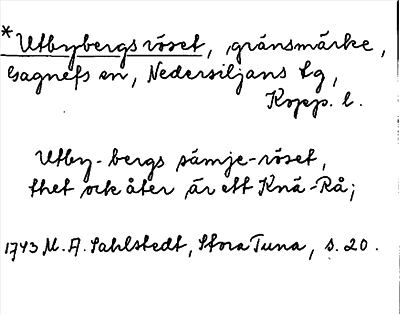 *Utbybergsröset, gränsmärke,
Gagnefs sn, Nedersiljans tg,
Kopp. l.
Utby-bergs sämje-röset,
thet ock åter är ett Knä-Rå;
1743 M. A. Sahlstedt, Stora Tuna, s. 20.